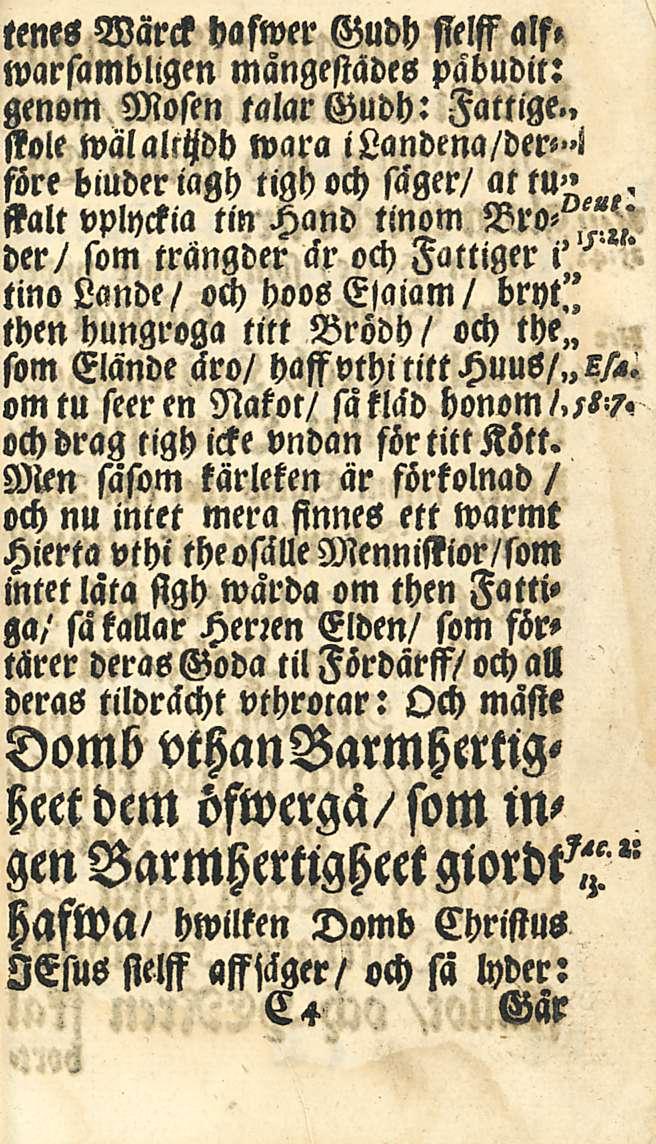 tenes Wärck hafwer Gudh sielff alf⸗
warsambligen mångestädes påbudit:
genom Mosen talar Gudh: Fattige„
skole wäl altijdh wara i Landena/der⸗„
före biuder iagh tigh och säger/ at tu„
skalt vplyckia tin Hand tinom Bro⸗
Deut.
15:21.
der/ som trängder är och Fattiger i„
tino Lande/ och hoos Esaiam/ bryt„
then hungroga titt Brödh/ och the„
som Elände äro/ haff vthi titt Huus/„
Esa.
om tu seer en Nakot/ så kläd honom/„
58:7.
och drag tigh icke vndan för titt Kött.
Men såsom kärleken är förkolnad/
och nu intet mera finnes ett warmt
Hierta vthi the osälle Menniskior/som
intet låta sigh wårda om then Fatti⸗
ga/ så kallar Herren Elden/ som för⸗
tärer deras Goda til Fördärff/ och all
deras tildrächt vthrotar: Och måste
Domb vthan Barmhertig⸗
heet dem öfwergå/ som in⸗
gen Barmhertigheet giordt
Jac. 2:
13.
hafwa/ hwilken Domb Christus
JEsus sielff affsäger/ och så lyder:
C 4 Går